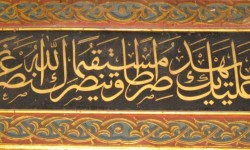 عليك ويهديك صراطا مستقيما وينصرك الله نصرا